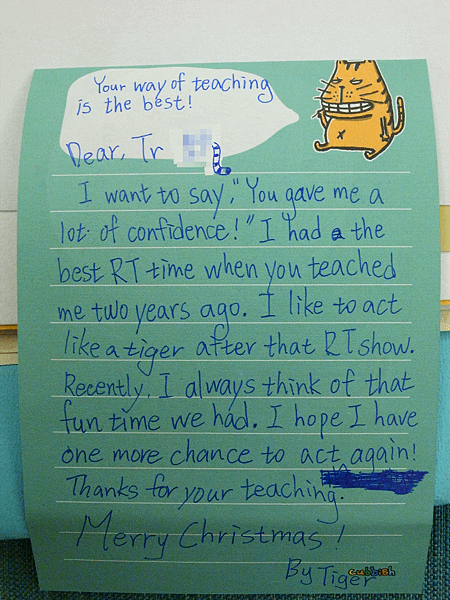 Your way of teaching
is the best!
Dear, Tr
I want to say, "You gave me a
lot of confidence!" I had a the
best RT time when you teached
me two years ago. I like to act
like a tiger after that RT show.
Recently, I always think of that
fun time we had. I hope I have
one more chance to act again!
Thanks for your teaching.
Merry Christmas!
By Tiger
cubbish